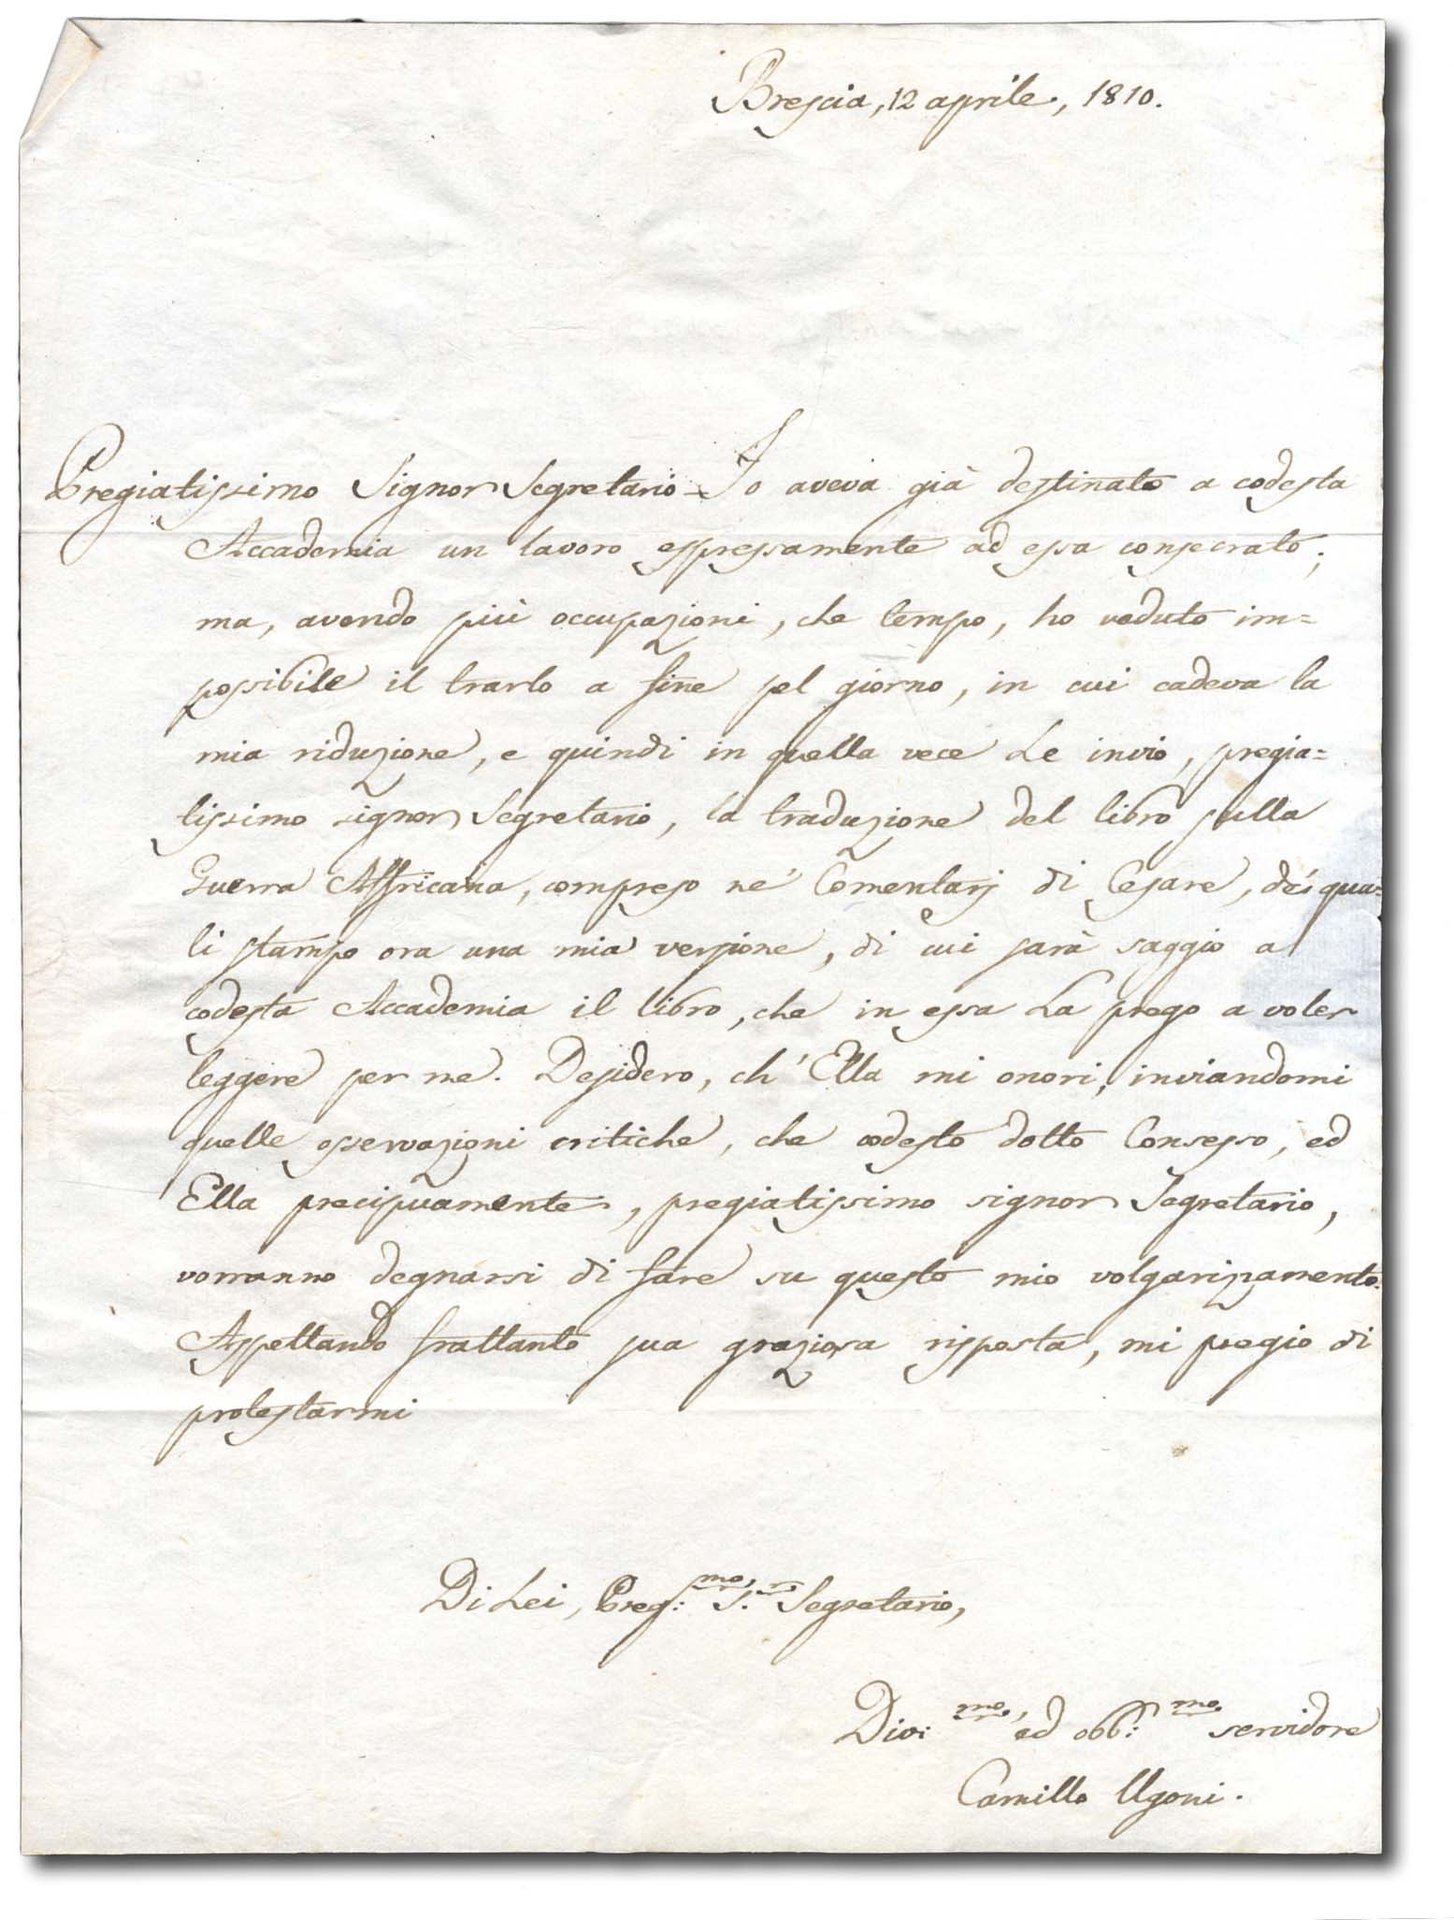 Brescia, 12 aprile, 1810.
Pregiatissimo Signor Segretario = Io aveva già destinato a codesta
Accademia un lavoro espressamente ad essa consecrato;
ma, avendo più occupazioni, che tempo, ho veduto im=
possibile il trarlo a fine pel giorno, in cui cadeva la
mia riduzione, e quindi in quella vece Le invio, pregia=
tissimo signor Segretario, la traduzione del libro sulla
Guerra Affricana, compreso ne' Comentarj di Cesare, de' qua=
li stampo ora una mia versione, di cui sarà saggio a
codesta Accademia il libro, che in essa La prego a voler
leggere per me. Desidero, ch' Ella mi onori, inviandomi
quelle osservazioni critiche, che codesto dotto Consesso, ed
Ella precipuamente, pregiatissimo signor Segretario,
vorranno degnarsi di fare su questo mio volgarizzamento.
Aspettando frattanto sua graziosa risposta, mi pregio di
protestarmi
Di Lei, Preg:mo S.r Segretario,
Div:mo, ed obb:mo servidore
Camillo Ugoni.